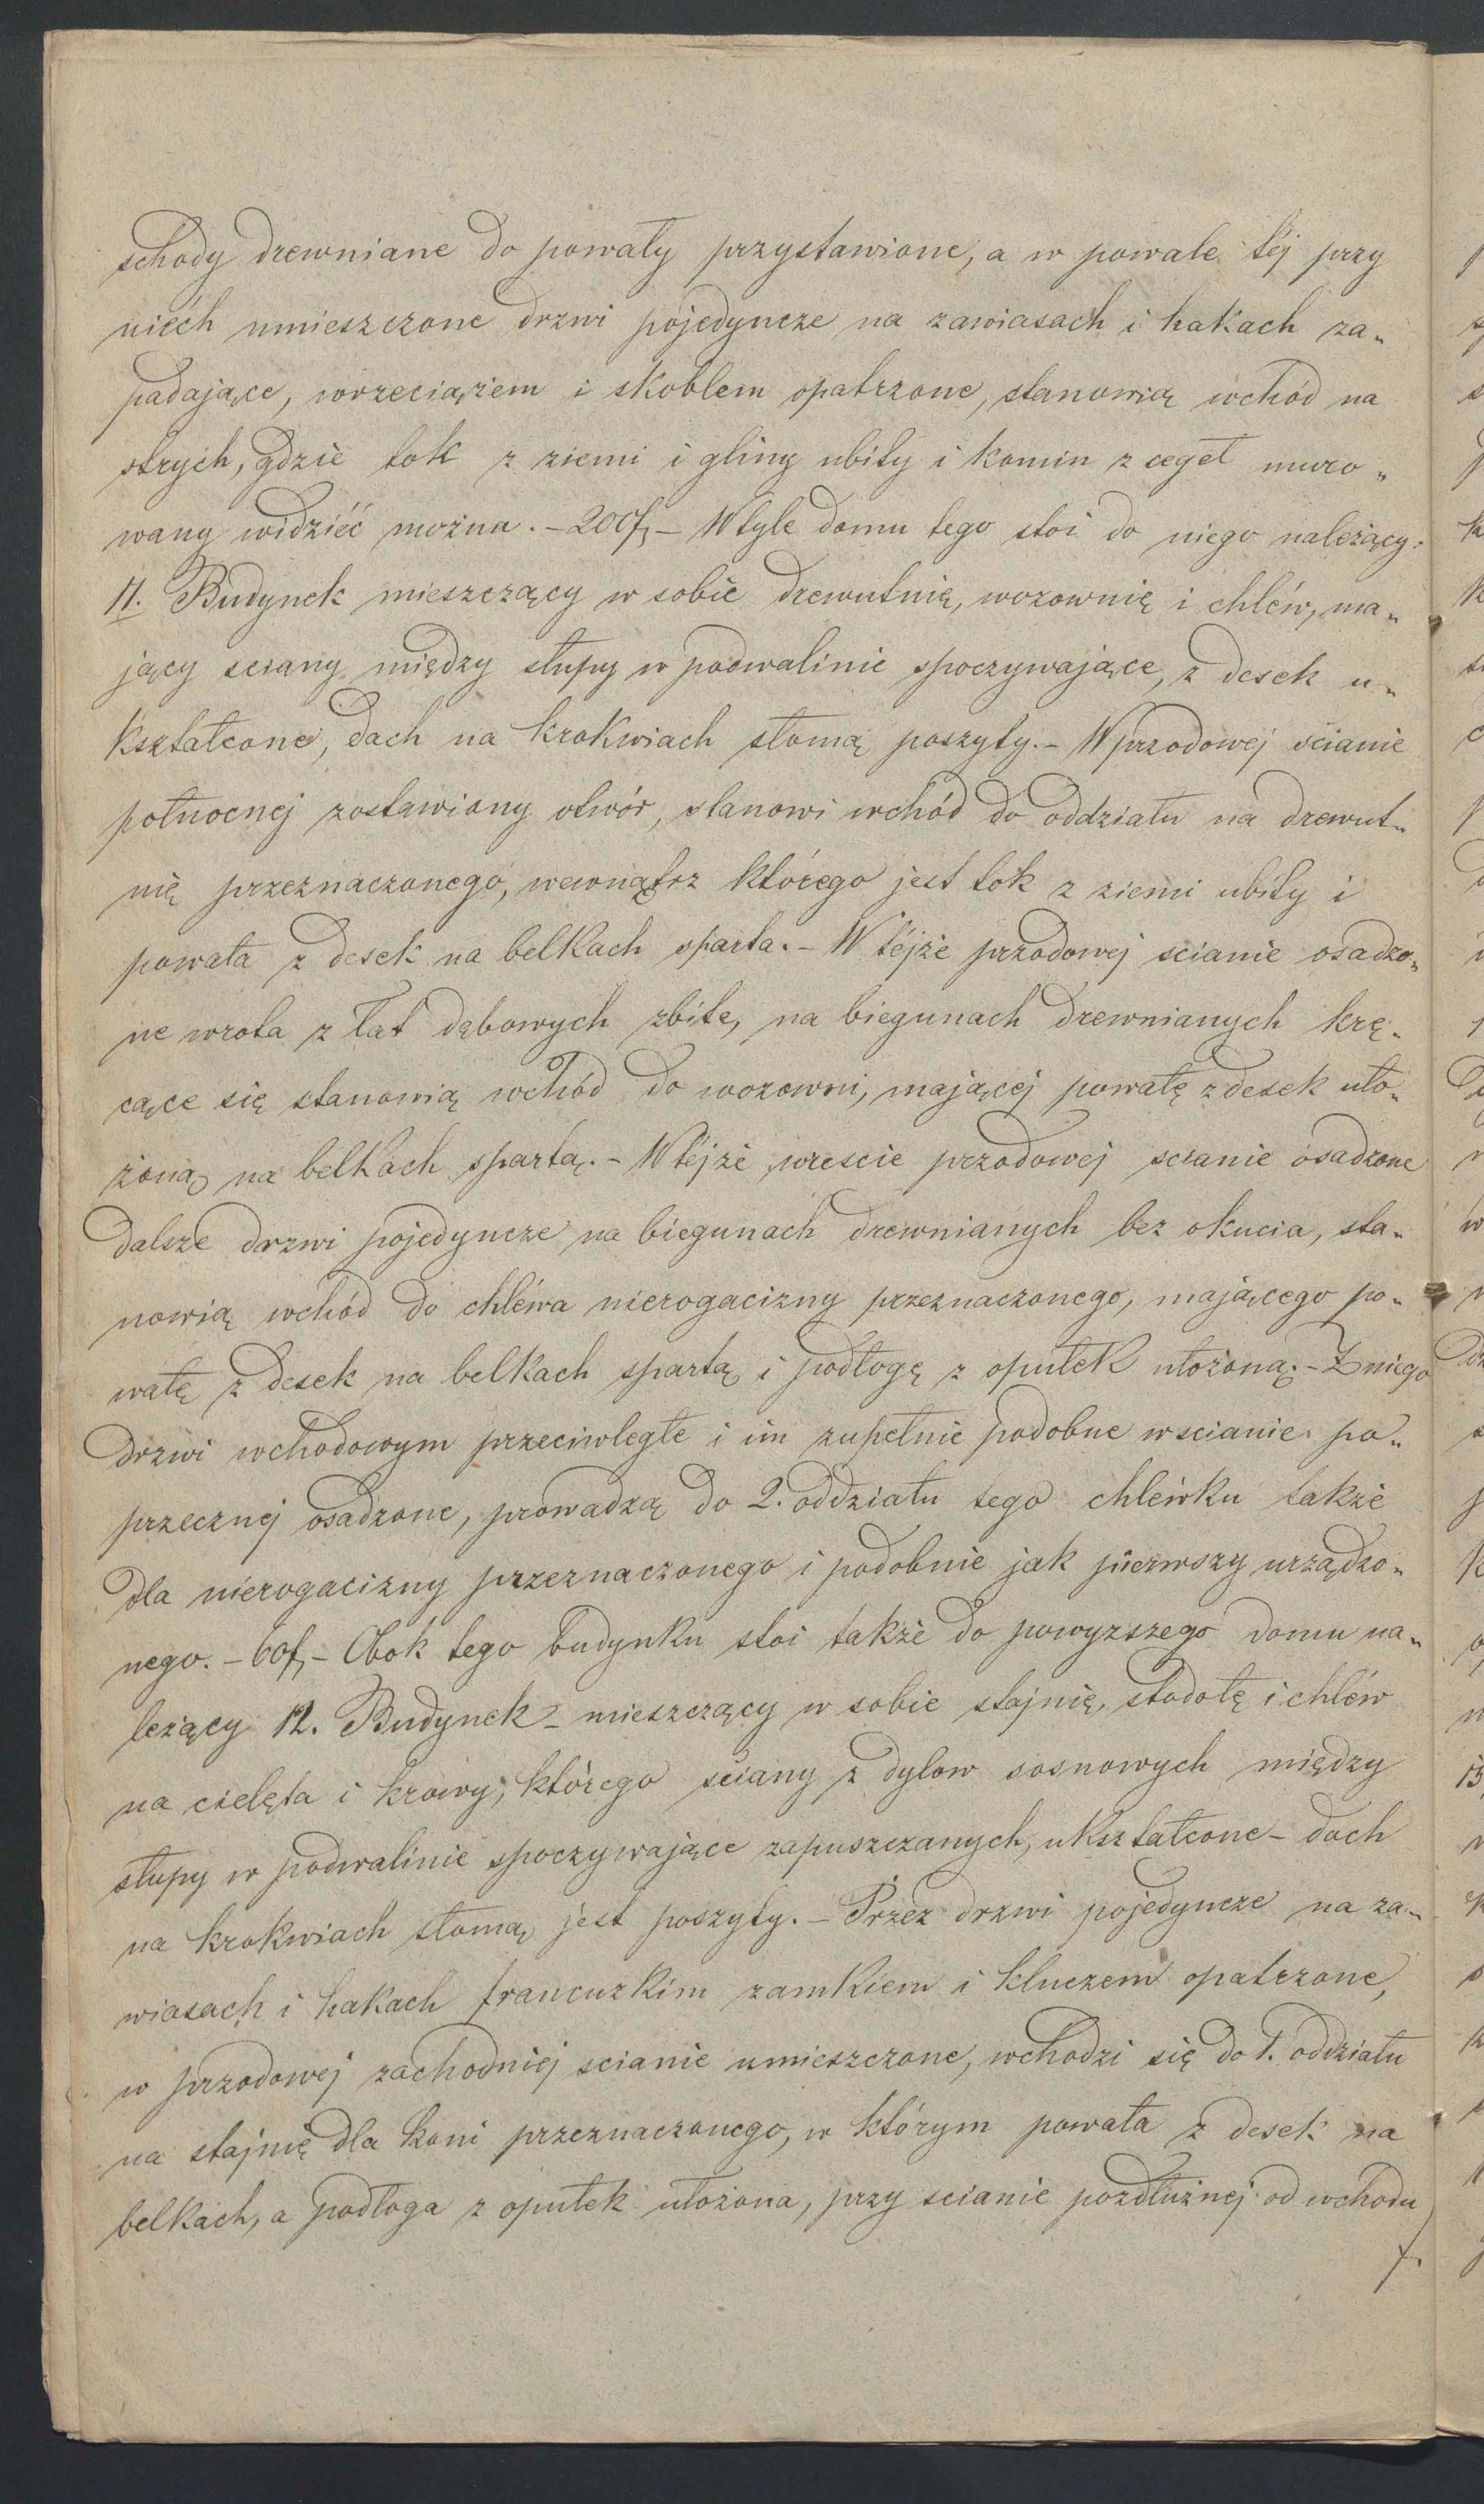 schody drewniane do powały przystawione, a w powale téj przy
niéch umieszczone drzwi pojedyncze na zawiasach i hakach za„
padające, wrzeciążem i skoblem opatrzone, stanowią wchód na
strych, gdzie tok z ziemi i gliny ubity i komin z cegeł muro„
wany widziéć można. – 200f, – W tyle domu tego stoi do niego należący:
11. Budynek mieszczący w sobie drewutnię, wozownię i chléw, ma„
jący sciany między słupy w podwalinie spoczywające, z desek u„
kształcone, dach na krokwiach słomą poszyty. – W przodowej ścianie
połnocnej zostawiony otwór, stanowi wchód do oddziału na drewut„
nię przeznaczonego, wewnątrz którego jest tok z ziemi ubity i
powała z desek na belkach sparta. – W téjże przodowej scianie osadzo„
ne wrota z łat dębowych zbite, na biegunach drewnianych krę„
cące się stanowią wchód do wozowni, mającej powałę z desek uło„
żoną na belkach spartą. – W téjże wreście przodowej scianie osadzone
dalsze drzwi pojedyncze na biegunach drewnianych bez okucia, sta„
nowią wchód do chléwa nierogacizny przeznaczonego, mającego po„
wałę z desek na belkach spartą i podłogę z opułek ułożoną. – Z niego
drzwi wchodowym przeciwległe i im zupełnie podobne w scianie po„
przecznej osadzone, prowadzą do 2. oddziału tego chléwku także
dla nierogacizny przeznaczonego i podobnie jak pierwszy urządzo„
nego. – 60f, – Obok tego budynku stoi także do powyższego domu na„
leżący 12. Budynek – mieszczący w sobie stajnię, stodołę i chléw
na cielęta i krowy, którego ściany z dylow sosnowych między
słupy w podwalinie spoczywające zapuszczanych, ukształcone – dach
na krokwiach słomą jest poszyty. – Przez drzwi pojedyncze na za„
wiasach i hakach francuzkim zamkiem i kluczem opatrzone,
w przodowej zachodniej scianie umieszczone, wchodzi się do 1. oddziału
na stajnię dla koni przeznaczonego, w którym powała z desek na
belkach, a podłoga z opułek ułożona, przy scianie pozdłużnej od wchodu